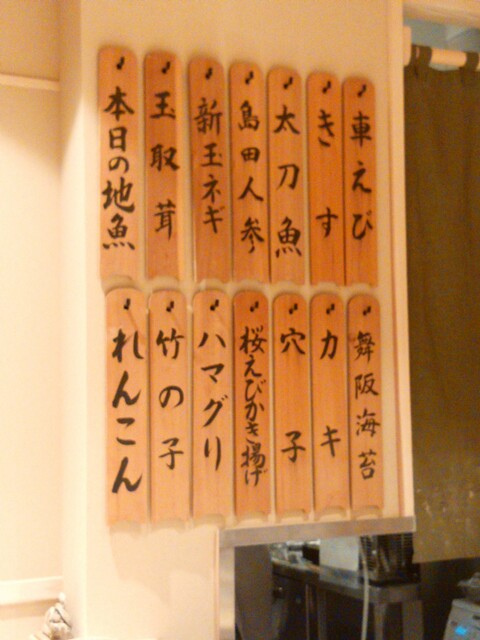 車えび
きす
太刀魚
島田人参
新玉ネギ
玉取茸
本日の地魚
舞阪海苔
カキ
穴子
桜えびかき揚げ
ハマグリ
竹の子
れんこん